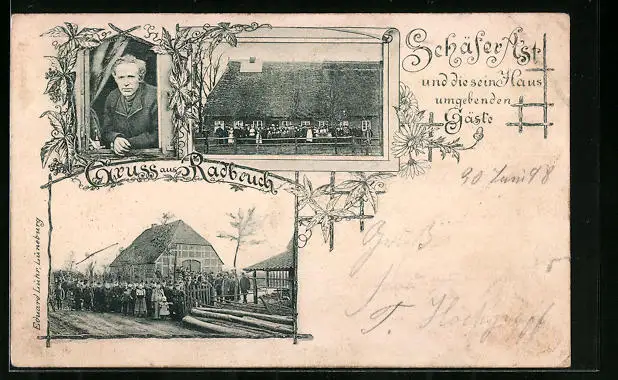 Schäfer Ast
und die sein Haus
umgebenden
Gäste
Gruss aus Radbruch
Eduard Lühr, Lüneburg
30 Juni 98
Gruß